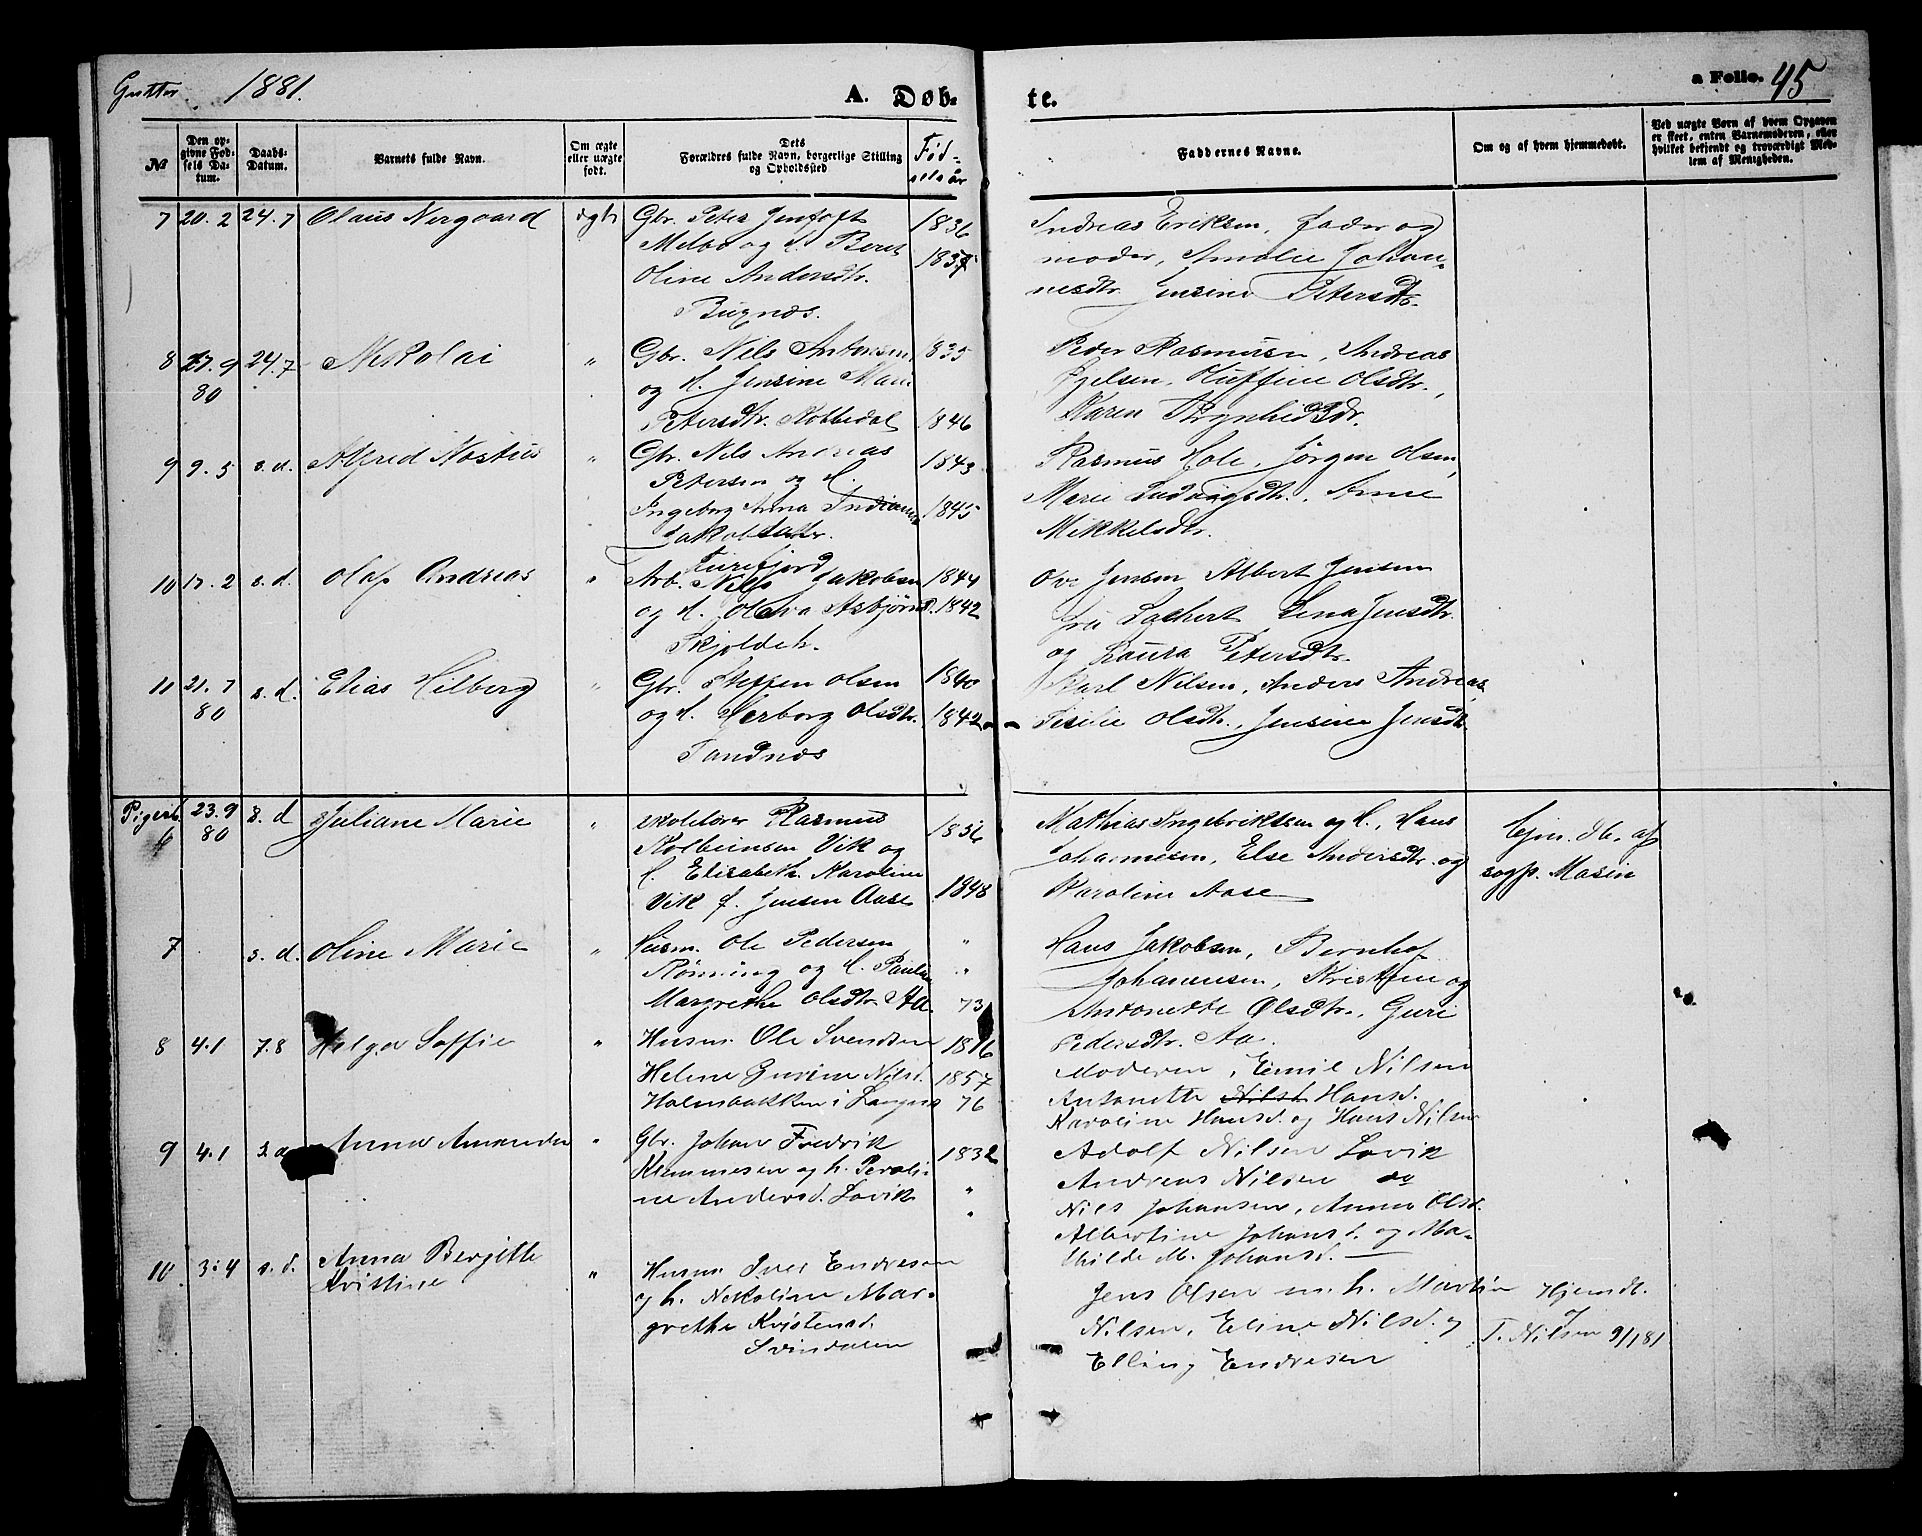 Gutter 1881.
A. Døb-
te.
a Folio. 45
№
Den opgivne Fødsels Datum.
Daabs-Datum.
Barnets fulde Navn.
Om ægte eller uægte født.
Dets Forældres fulde Navn, borgerlige Stilling og Opholdssted
Fødselsår
Faddernes Navne.
Om og af hvem hjemmedøbt.
Ved uægte Børn af hvem Opgaven er skeet, enten Barnemoderen, eller hvilket bekjendt og troværdigt Medlem af Menigheden.
7 20.2 24.7 Olaus Norgaard ægte Gbr. Peter Jentoft 1836 Andreas Eriksen, fader og
Melbo og h. Beret 1837 moder, Amalie Johan-
Oline Andersdtr. nesdtr Jensine Petersdtr.
Bugnæs.
8 27.9 24.7 Nikolai " Gbr. Nils Antonsen 835 Peder Rasmussen, Andreas
80 og h. Jensine Marie Olsdtr.,
Petersdtr. 1846 Karen
9 9.5 s.d. Alfred " Gbr. Nils Andreas 1843 Rasmus Hole, Jørgen Olsen,
Petersen og h. Marie Ludvigsdtr., Anne
Ingeborg Anna 1845 Mikkelsdtr.
Jakobsdatter
10 17.2 s.d. Olaf Andreas " Arb. Nils Jakobsen 1844 Ove Jensen Albert Jensen
og h. Asbjørnsd. 1842 fru Lena Jensdtr.
Skjoldeh. og Laura Petersdtr.
11 21.7 s.d. Elias Hilberg " Gbr. Steffen Olsen 1840 Karl Nilsen, Anders Andreas
80 og h. Herborg Olsdtr. 1842 Olsdtr., Jensine Jensdtr.
Sandnæs
Piger 23.9 s.d Juliane Marie " Rasmus 1856 Mathias Ingebriktsen og h., Hans
6 80 Kolbeinsen Vik og Johannesen, Else Andersdtr. og
h. Elisabeth Karoline Karoline Aase
Vik f. Jensen Aase 1848
Hjm. db. af
sogp. Masin
7 s.d. Oline Marie " Husm. Ole Pedersen " Hans Jakobsen, Bernhof
Rønning og h. Pauline " Johannesen, Kristine og
Margrethe Olsdtr. Aa. 73 Antonette Olsdtr., Guri
Pedersdtr. Aa.
8 4.1 7.8 Helga Soffie " Husm. Ole Svendsen 1816 Moderen, Emil Nilsen
Helene Gurine Nilsd. 1857 Antonette Nilsd Hansd.
Holmbakken i Langnes 76 Karoline Hansd. og Hans Nilsen
9 4.1 s.d Anna Amanda " Gbr. Johan Fredrik 1832 Adolf Nilsen Lovik
Klemmesen og h. Peroli- " Andreas Nilsen do
ne Andersd. Lovik " Nils Johansen, Anna Olsd.
Albertine Johansd. og Ma-
thilde M. Johansd.
10 3.4 s.d. Anna Bergitte " Husm. Iver Endresen Jens Olsen m. h. Martin Hjemdt.
Kristine og h. Nekoline Mar- Nilsen, Eline Nilsd. og T. Nilsen 9/1 81
grethe Kristensd. Elling Endresen
Svindalen